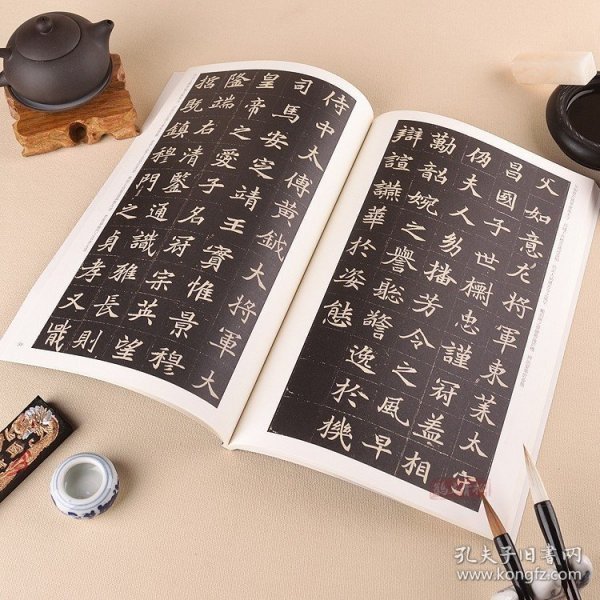 父如意左将軍東莱太守
昌國子世櫚忠謹冠盖相
仍夫人幼播芳令之風早
勤韶婉之譽聡警逸於機
辯諠讌華於姿態
侍中太傅黄鉞大将軍大
司馬安定靖王寶惟景穆
皇帝之愛子名冠宗英望
隆端右清鑒通識雅長則
既鎮穆門之貞孝又戢
孔夫子旧書网
www.kongfz.com